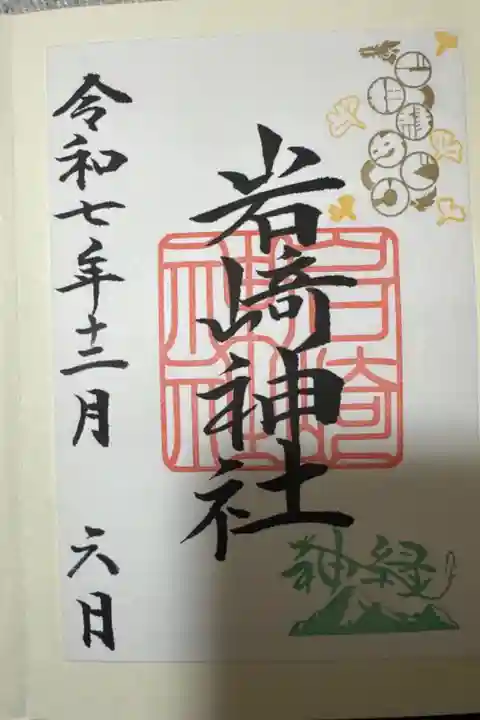 岩崎神社
令和七年十二月 六日
岩崎神社
神縁